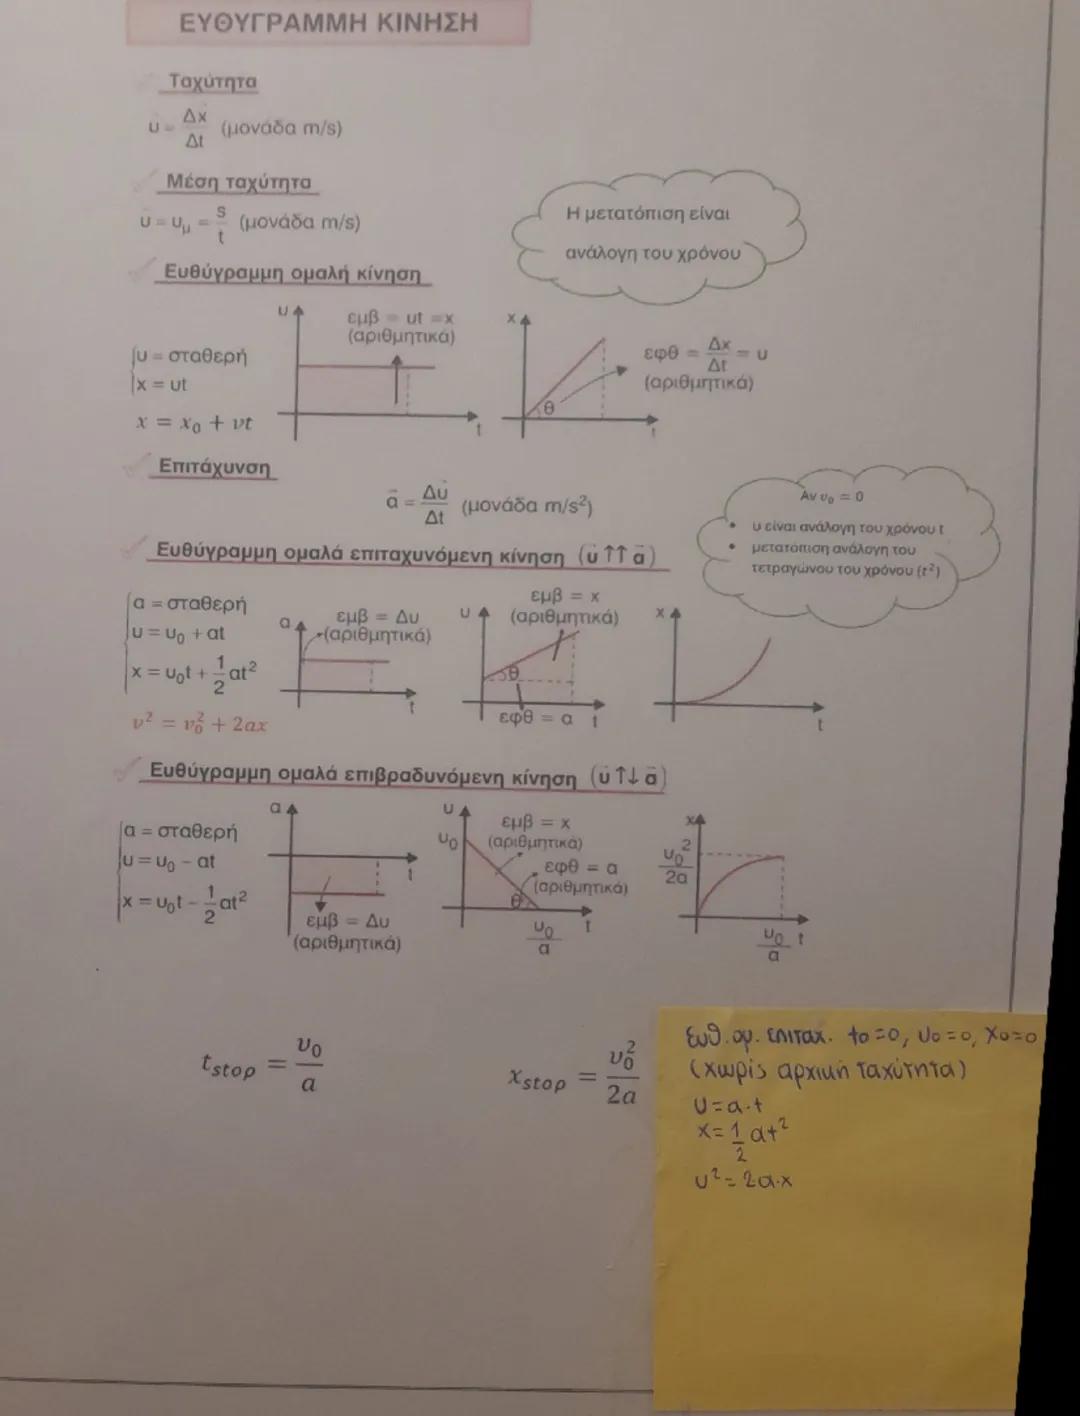 ΕΥΘΥΓΡΑΜΜΗ ΚΙΝΗΣΗ
Ταχύτητα
υ = Δx/Δt (μονάδα m/s)
Μέση ταχύτητα
ῡ = υμ = s/t (μονάδα m/s)
Η μετατόπιση είναι
ανάλογη του χρόνου
Ευθύγραμμη ομαλή κίνηση
υ = σταθερή
x = υt
x = x₀ + vt
υ
εμβ = υt = x
(αριθμητικά)
t
x
θ
t
εφθ = Δx/Δt = υ
(αριθμητικά)
Επιτάχυνση
a⃗ = Δυ⃗/Δt (μονάδα m/s²)
Αν υ₀ = 0
• υ είναι ανάλογη του χρόνου t
• μετατόπιση ανάλογη του
τετραγώνου του χρόνου (t²)
Ευθύγραμμη ομαλά επιταχυνόμενη κίνηση (υ⃗ ↑↑ a⃗)
a = σταθερή
υ = υ₀ + at
x = υ₀t + 1/2 at²
v² = v₀² + 2ax
a
εμβ = Δυ
(αριθμητικά)
t
υ
εμβ = x
(αριθμητικά)
θ
εφθ = a
t
x
t
Ευθύγραμμη ομαλά επιβραδυνόμενη κίνηση (υ⃗ ↑↓ a⃗)
a = σταθερή
υ = υ₀ - at
x = υ₀t - 1/2 at²
a
t
εμβ = Δυ
(αριθμητικά)
υ
υ₀
εμβ = x
(αριθμητικά)
εφθ = a
(αριθμητικά)
θ
υ₀/a
t
x
υ₀²/2a
υ₀/a
t
tstop = υ₀/a
xstop = υ₀²/2a
Ευθ. ομ. επιταχ. t₀=0, υ₀=0, x₀=0
(χωρίς αρχική ταχύτητα)
υ=a·t
x=1/2 at²
υ²=2a·x